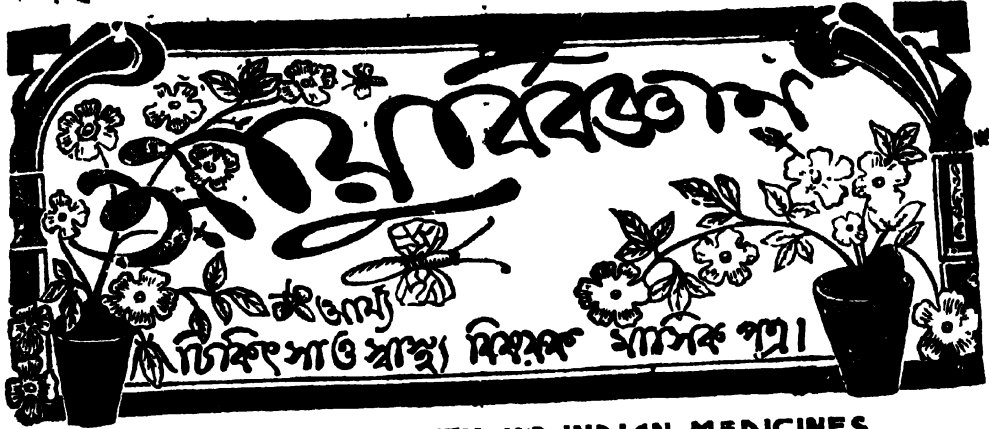 আয়ুর্ব্বিজ্ঞান
আর্য্য
চিকিৎসা ও স্বাস্থ্য বিষয়ক মাসিক পত্র।
INDIAN MEDICINES